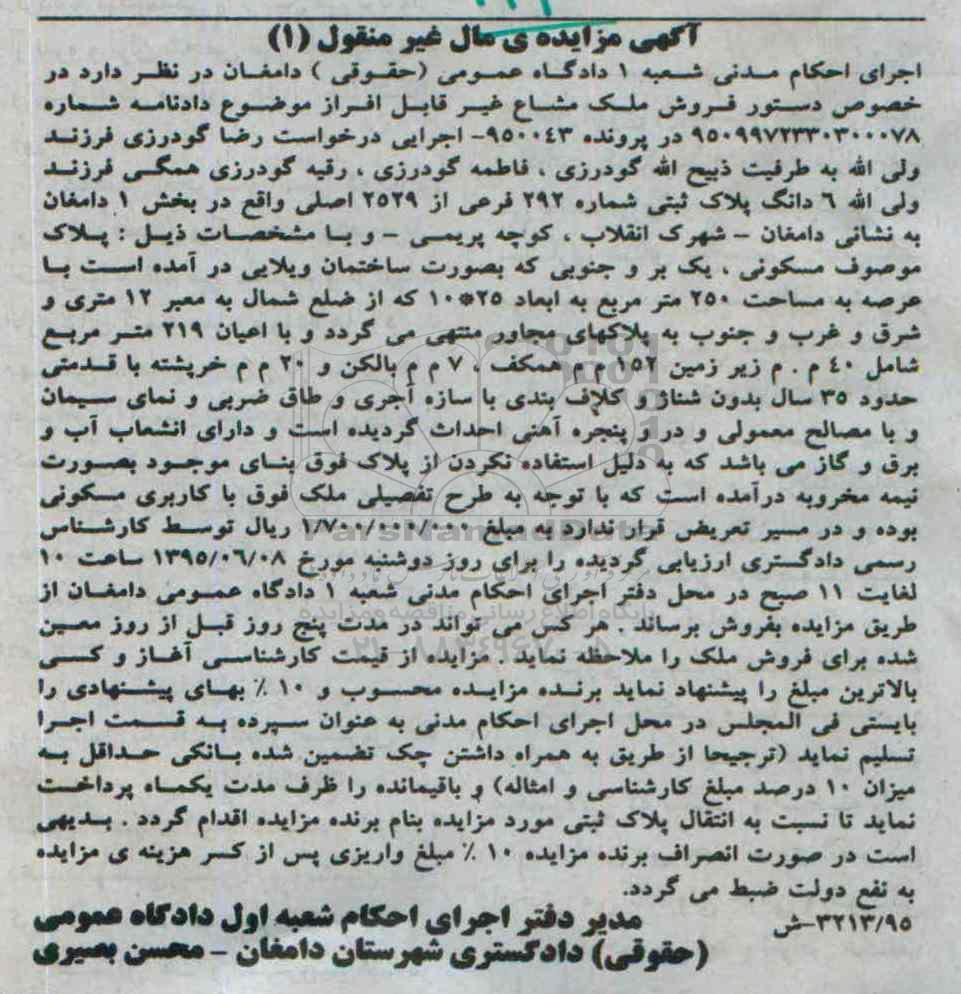 آگهی مزایده ی مال غیر منقول (۱)
اجرای احکام مدنی شعبه ۱ دادگاه عمومی (حقوقی ) دامغان در نظر دارد در
خصوص دستور فروش ملک مشاع غیر قابل افراز موضوع دادنامه شماره
۹۵۰۹۹۷۲۳۳۰۳۰۰۰۷۸ در پرونده ۹۵۰۰۴۳- اجرایی درخواست رضا گودرزی فرزند
ولی الله به طرفیت ذبیح الله گودرزی ، فاطمه گودرزی ، رقیه گودرزی همگی فرزند
ولی الله ٦ دانگ پلاک ثبتی شماره ۲۹۲ فرعی از ۲۵۲۹ اصلی واقع در بخش ۱ دامغان
به نشانی دامغان - شهرک انقلاب ، کوچه پریمی - و با مشخصات ذیل : پلاک
موصوف مسکونی ، یک بر و جنوبی که بصورت ساختمان ویلایی در آمده است با
عرصه به مساحت ۲۵۰ متر مربع به ابعاد ۲۵*۱۰ که از ضلع شمال به معبر ۱۲ متری و
شرق و غرب و جنوب به پلاکهای مجاور منتهی می گردد و با اعیان ۲۱۹ متر مربع
شامل ۴۰ م . م زیر زمین ۱۵۲ م م همکف ، ۷ م م بالکن و ۲۰ م م خرپشته با قدمتی
حدود ۳۵ سال بدون شناژ و کلاف بندی با سازه آجری و طاق ضربی و نمای سیمان
و با مصالح معمولی و در و پنجره آهنی احداث گردیده است و دارای انشعاب آب و
برق و گاز می باشد که به دلیل استفاده نکردن از پلاک فوق بنای موجود بصورت
نیمه مخروبه درآمده است که با توجه به طرح تفصیلی ملک فوق با کاربری مسکونی
بوده و در مسیر تعریض قرار ندارد به مبلغ ۱/۷۰۰/۰۰۰/۰۰۰ ریال توسط کارشناس
رسمی دادگستری ارزیابی گردیده را برای روز دوشنبه مورخ ۱۳۹۵/۰۶/۰۸ ساعت ۱۰
لغایت ۱۱ صبح در محل دفتر اجرای احکام مدنی شعبه ۱ دادگاه عمومی دامغان از
طریق مزایده بفروش برساند . هر کس می تواند در مدت پنج روز قبل از روز معین
شده برای فروش ملک را ملاحظه نماید . مزایده از قیمت کارشناسی آغاز و کسی
بالاترین مبلغ را پیشنهاد نماید برنده مزایده محسوب و ۱۰ ٪ بهای پیشنهادی را
بایستی فی المجلس در محل اجرای احکام مدنی به عنوان سپرده به قسمت اجرا
تسلیم نماید (ترجیحا از طریق به همراه داشتن چک تضمین شده بانکی حداقل به
میزان ۱۰ درصد مبلغ کارشناسی و امثاله) و باقیمانده را ظرف مدت یکماه پرداخت
نماید تا نسبت به انتقال پلاک ثبتی مورد مزایده بنام برنده مزایده اقدام گردد . بدیهی
است در صورت انصراف برنده مزایده ۱۰ ٪ مبلغ واریزی پس از کسر هزینه ی مزایده
به نفع دولت ضبط می گردد.
۳۲۱۳/۹۵-ش
مدیر دفتر اجرای احکام شعبه اول دادگاه عمومی
(حقوقی) دادگستری شهرستان دامغان - محسن بصیری